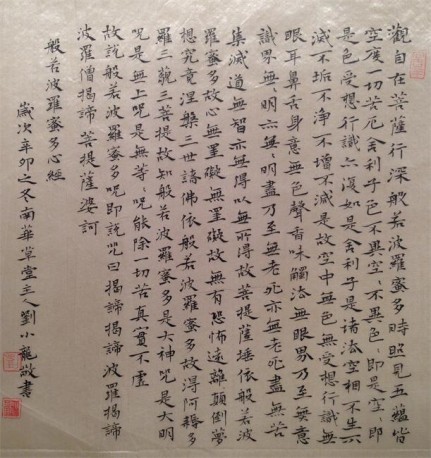 觀自在菩薩行深般若波羅蜜多時照見五蘊皆
空度一切苦厄舍利子色不異空〻不異色〻即是空〻即
是色受想行識亦復如是舍利子是諸法空相不生不
滅不垢不淨不增不減是故空中無色無受想行識無
眼耳鼻舌身意無色聲香味觸法無眼界乃至無意
識界無〻明亦無〻明盡乃至無老死亦無老死盡無苦
集滅道無智亦無得以無所得故菩提薩埵依般若波
羅蜜多故心無罣礙無罣礙故無有恐怖遠離顛倒夢
想究竟涅槃三世諸佛依般若波羅蜜多故得阿耨多
羅三藐三菩提故知般若波羅蜜多是大神咒是大明
咒是無上咒是無等〻咒能除一切苦真實不虛
故說般若波羅蜜多咒即說咒曰揭諦揭諦波羅揭諦
波羅僧揭諦菩提薩婆訶
般若波羅蜜多心經
歲次辛卯之冬南華草堂主人劉小龍敬書